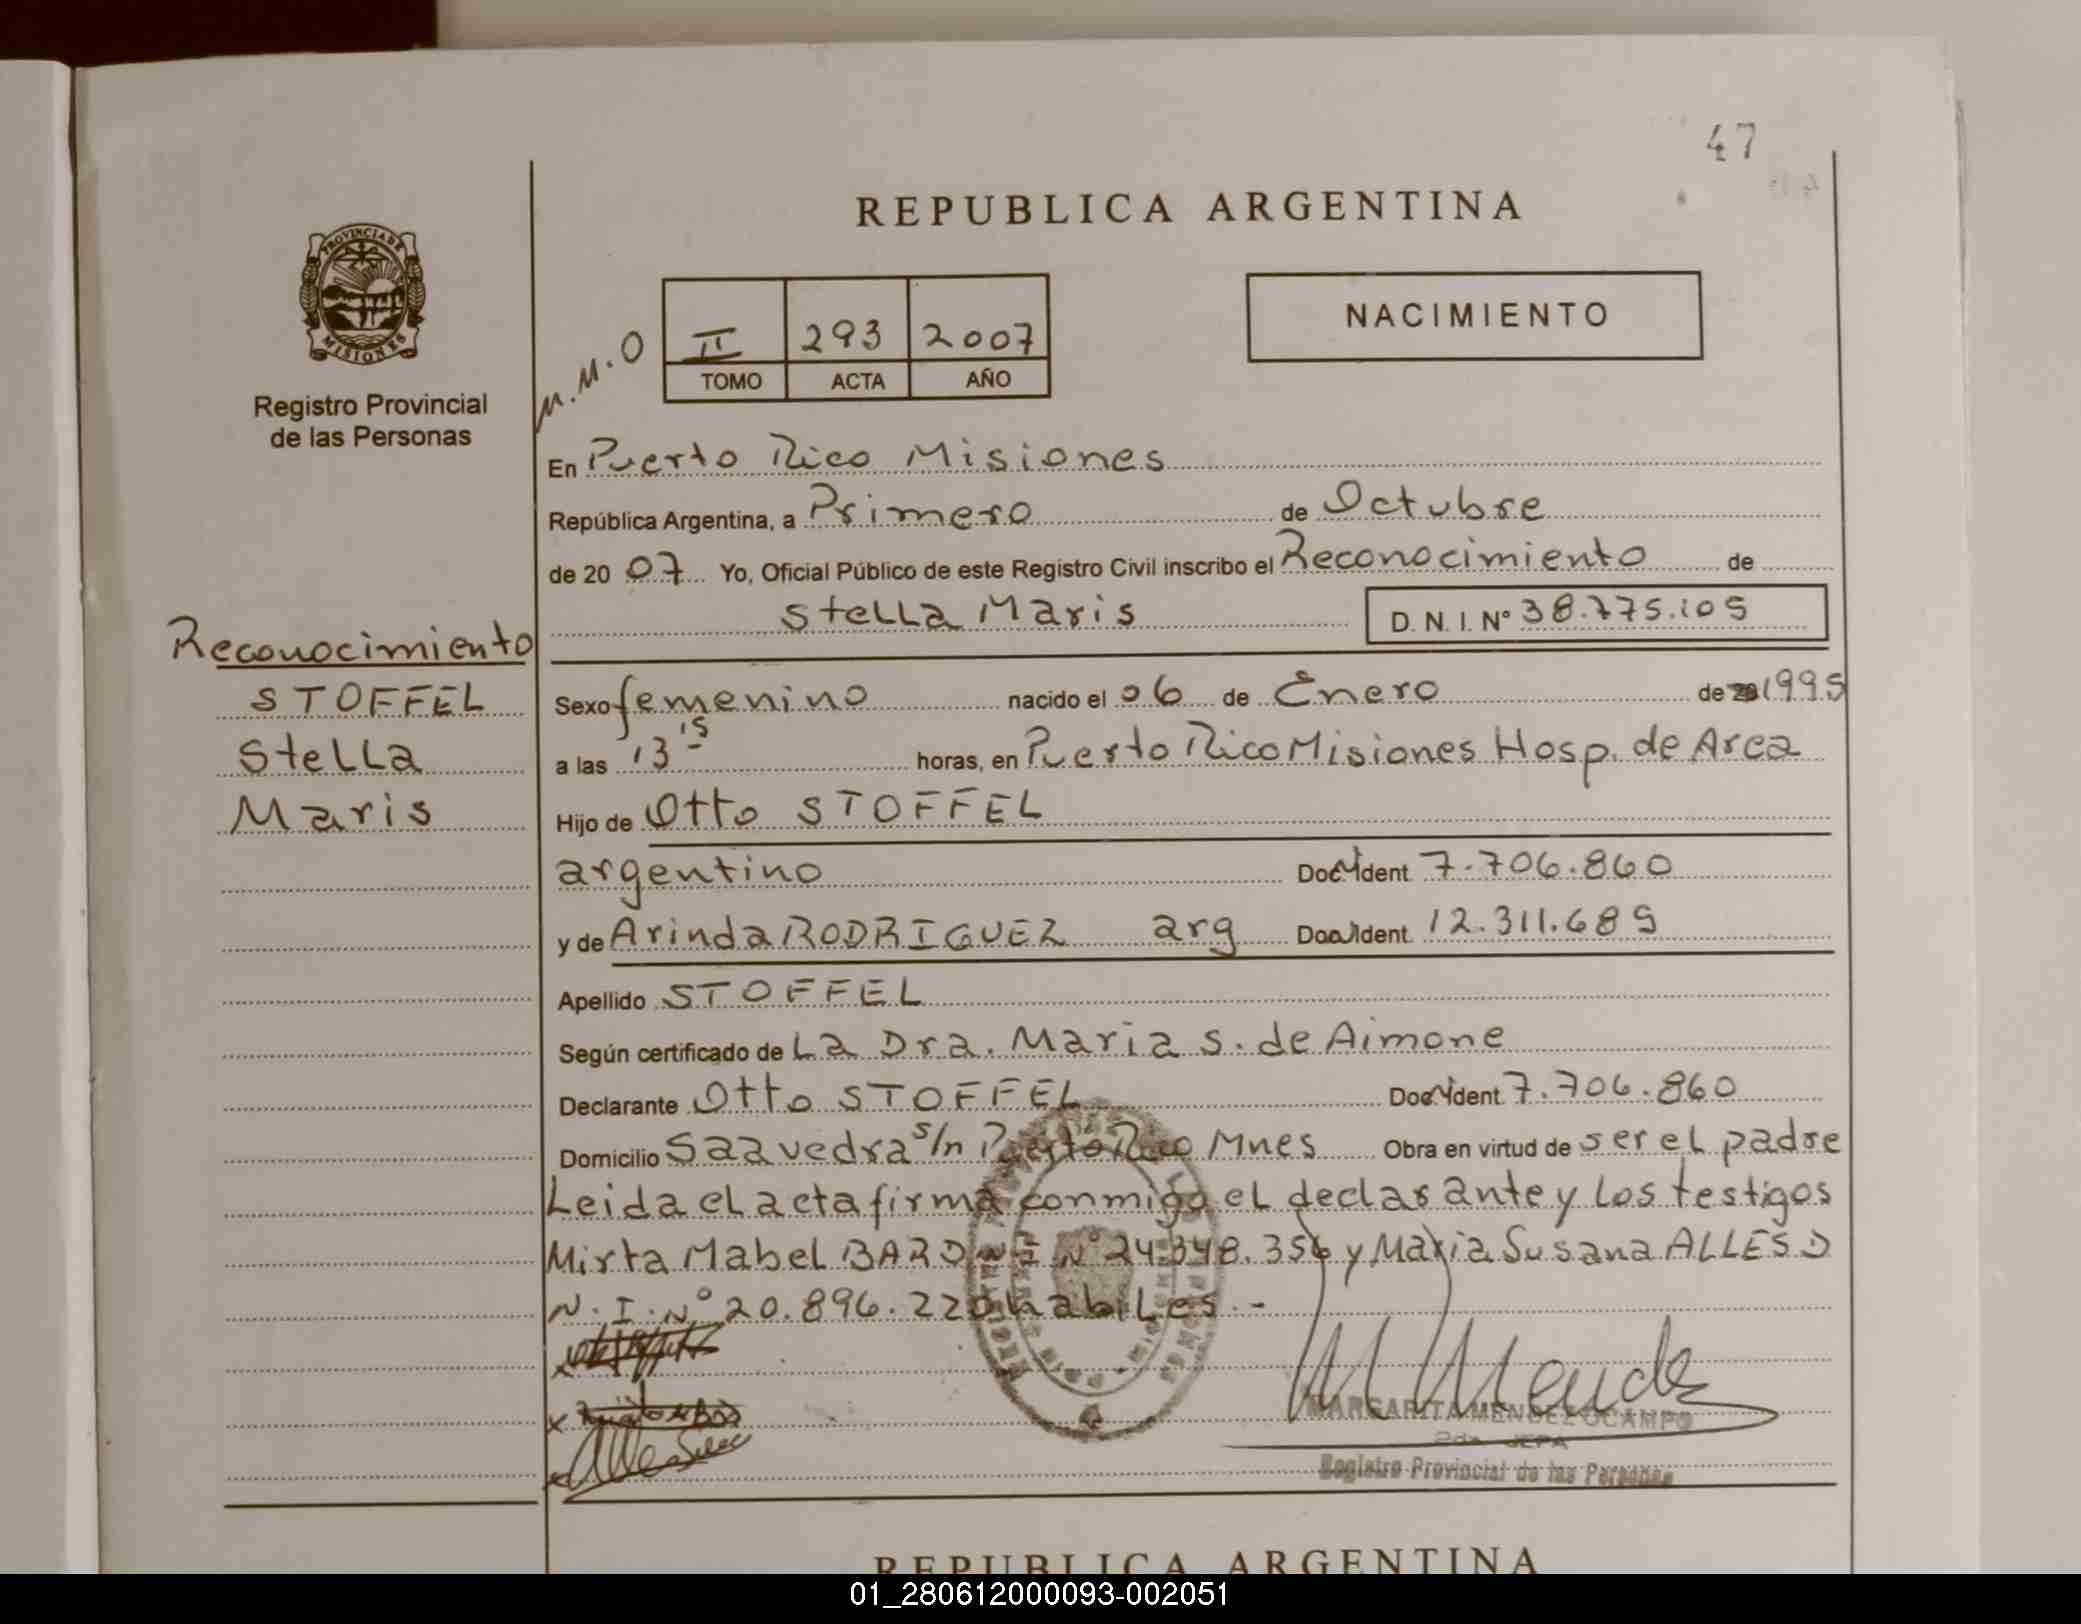 47
REPUBLICA ARGENTINA
PROVINCIA DE
MISIONES
Registro Provincial
de las Personas
M.M.O
II 293 2007
TOMO ACTA AÑO
NACIMIENTO
En Puerto Rico Misiones
República Argentina, a Primero de Octubre
de 20 07 Yo, Oficial Público de este Registro Civil inscribo el Reconocimiento de
Stella Maris D. N. I. Nº 38.775.105
Reconocimiento
STOFFEL
Stella
Maris
Sexo femenino nacido el 06 de Enero de 1995
a las 13 15 horas, en Puerto Rico Misiones Hosp. de Area
Hijo de Otto STOFFEL
argentino Doc Ident 7.706.860
y de Arinda RODRIGUEZ arg Doc Ident. 12.311.689
Apellido STOFFEL
Según certificado de La Dra. Maria S. de Aimone
Declarante Otto STOFFEL Doc Ident. 7.706.860
Domicilio Saavedra s/n Puerto Rico Mnes Obra en virtud de ser el padre
Leida el acta firma conmigo el declarante y los testigos
Mirta Mabel BAR D N I Nº 24.348.356 y Maria Susana ALLES D
N. I. Nº 20.896.220 habiles.-
M Mendez
MARGARITA MENDEZ OCAMPO
2da JEFA
Registro Provincial de las Personas
REPUBLICA ARGENTINA
01_280612000093-002051